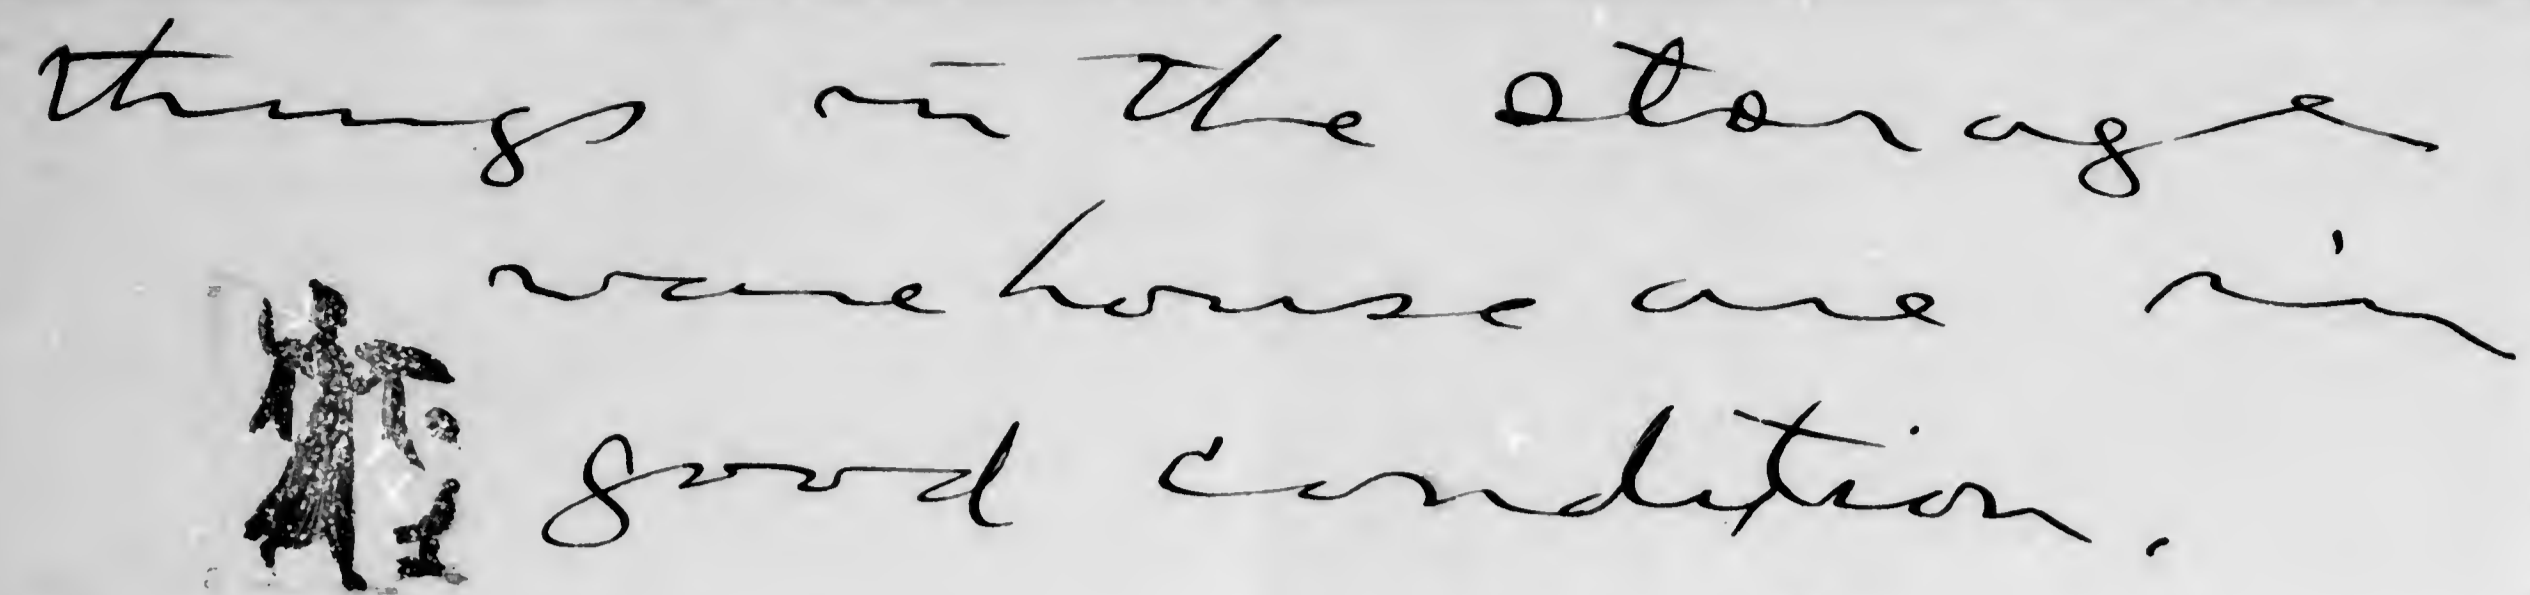 things in the storage
warehouse are in
good condition.